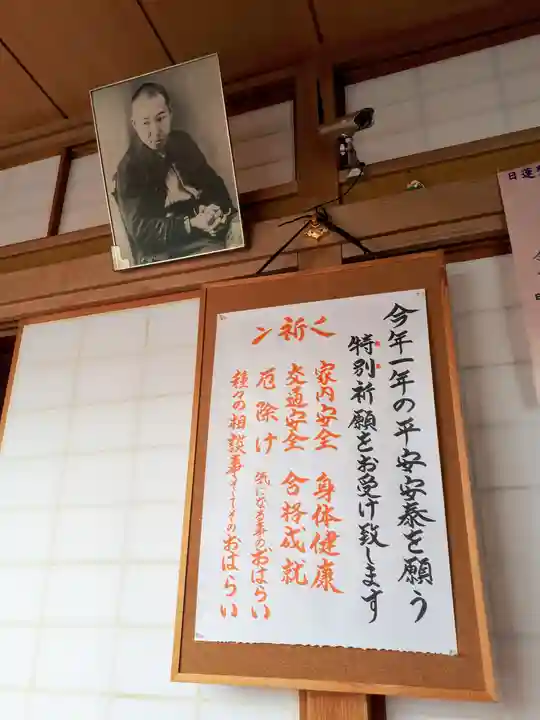 今年一年の平安安泰を願う
特別祈願をお受け致します
く祈ン
家内安全 身体健康
交通安全 合格成就
厄除け 気になる事のおはらい
種々の相談事そしてそのおはらい
日蓮